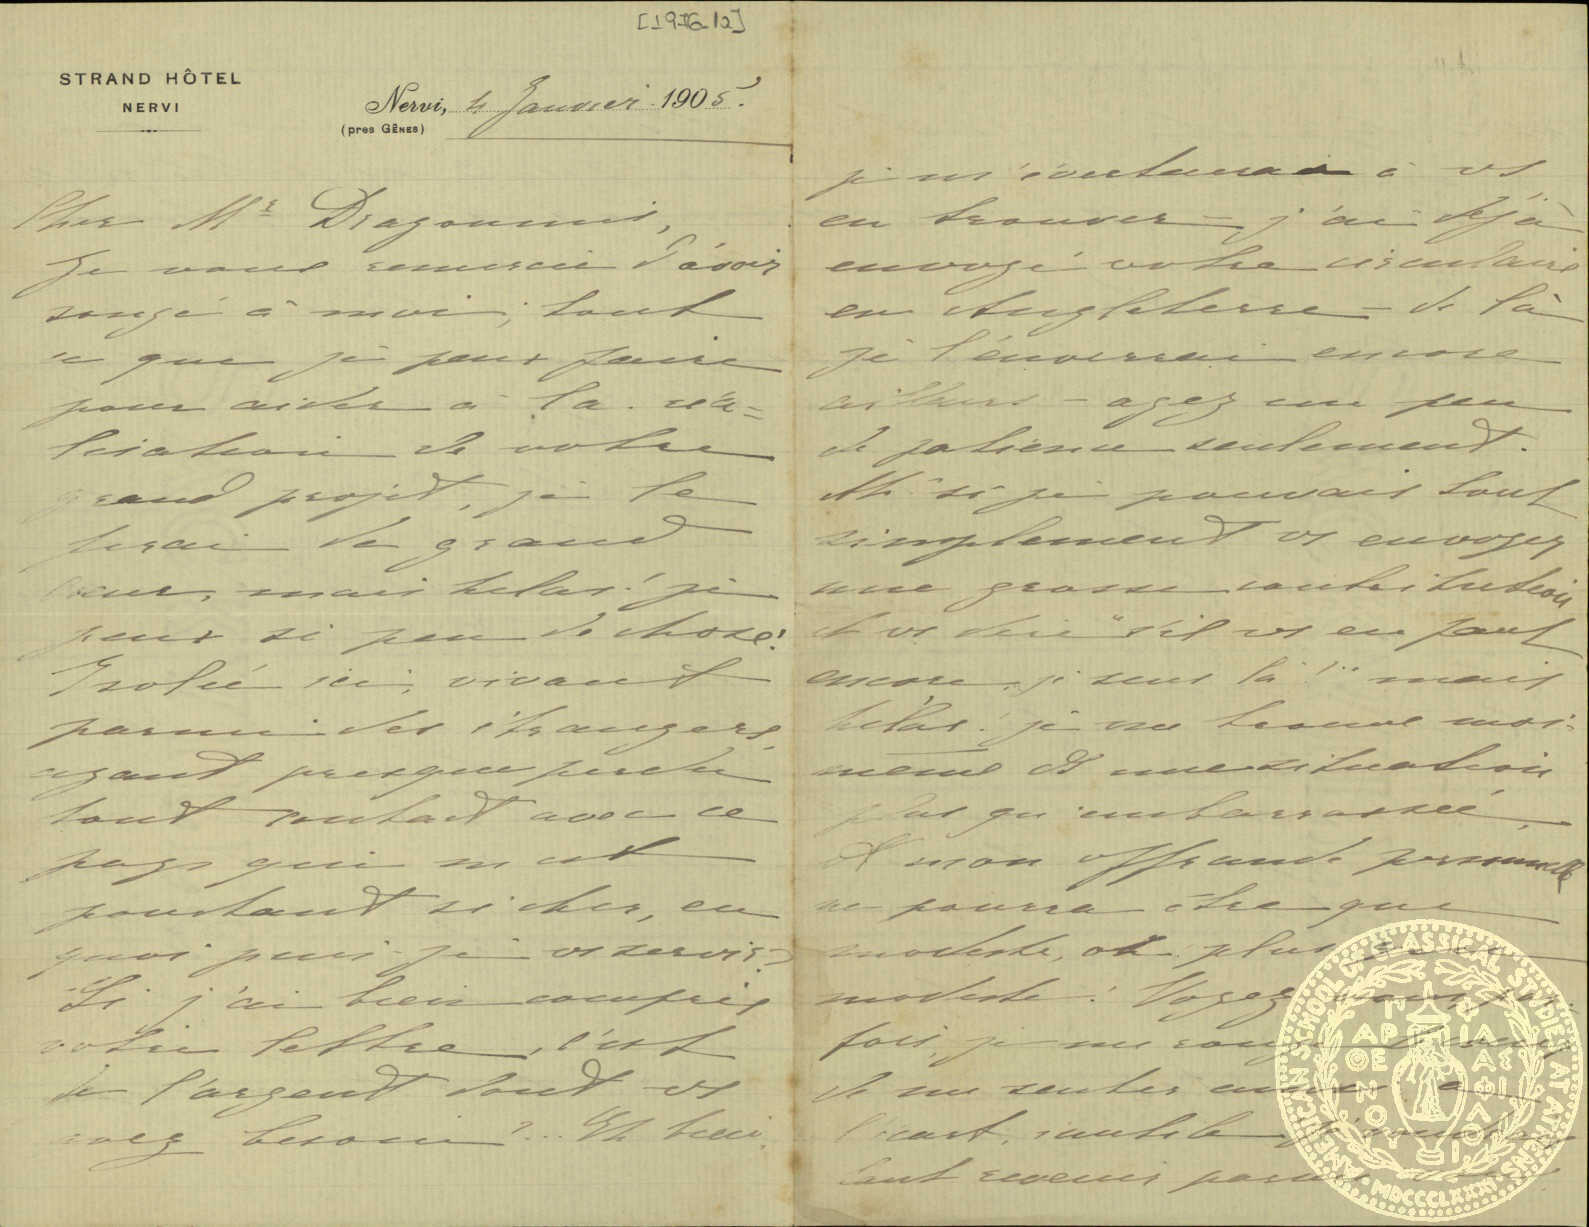 STRAND HÔTEL
NERVI
Nervi, 4 Janvier 1905.
(pres GÊNES)
Cher Mr Dragoumis,
Je vous remercie d'avoir
songé à moi; tout
ce que je peux faire
pour aider à la réa=
lisation de votre
grand projet, je le
ferai de grand
coeur, mais hélas! je
peux si peu de chose!
Isolée ici, vivant
parmi des étrangers,
ayant presque perdu
tout contact avec ce
pays qui m'est
pourtant si cher, en
quoi puis-je vs servir?
Si j'ai bien compris
votre lettre, c'est
de l'argent dont vs
avez besoin?... Eh bien,
je m'évertuerai à vs
en trouver – j'ai déjà
envoyé votre circulaire
en Angleterre – de là
je l'enverrai encore
ailleurs – ayez un peu
de patience seulement.
Ah si je pouvais tout
simplement vs envoyer
une grosse contribution
et vs dire "s'il vs en faut
encore, je suis là!" mais
hélas! je me trouve moi-
même ds une situation
plus qu'embarrassée,
et mon offrande personnelle
ne pourra être que
modeste, oh plus que
modeste! Voyez vous, par-
fois, je me
de me sentir à
l'écart, inutile je voudrais
tant revenir parmi
AMERICAN SCHOOL OF CLASSICAL STUDIES AT ATHENS
ΠΑΡΘΕΝΟΥ ΦΙΛΑΣ ΦΙΛΟΙ
MDCCCLXXXI